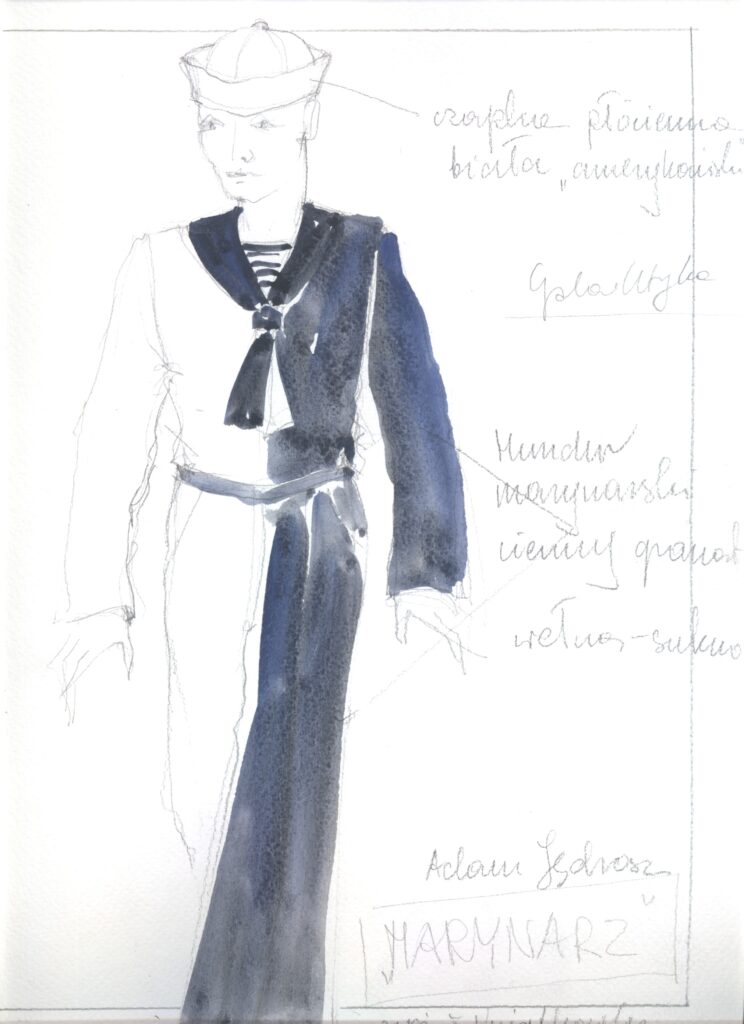 czapka płócienna
biała „amerykańska"
Mundur
marynarski
ciemny granat
wełna-sukno
Adam Jędrosz
„MARYNARZ"